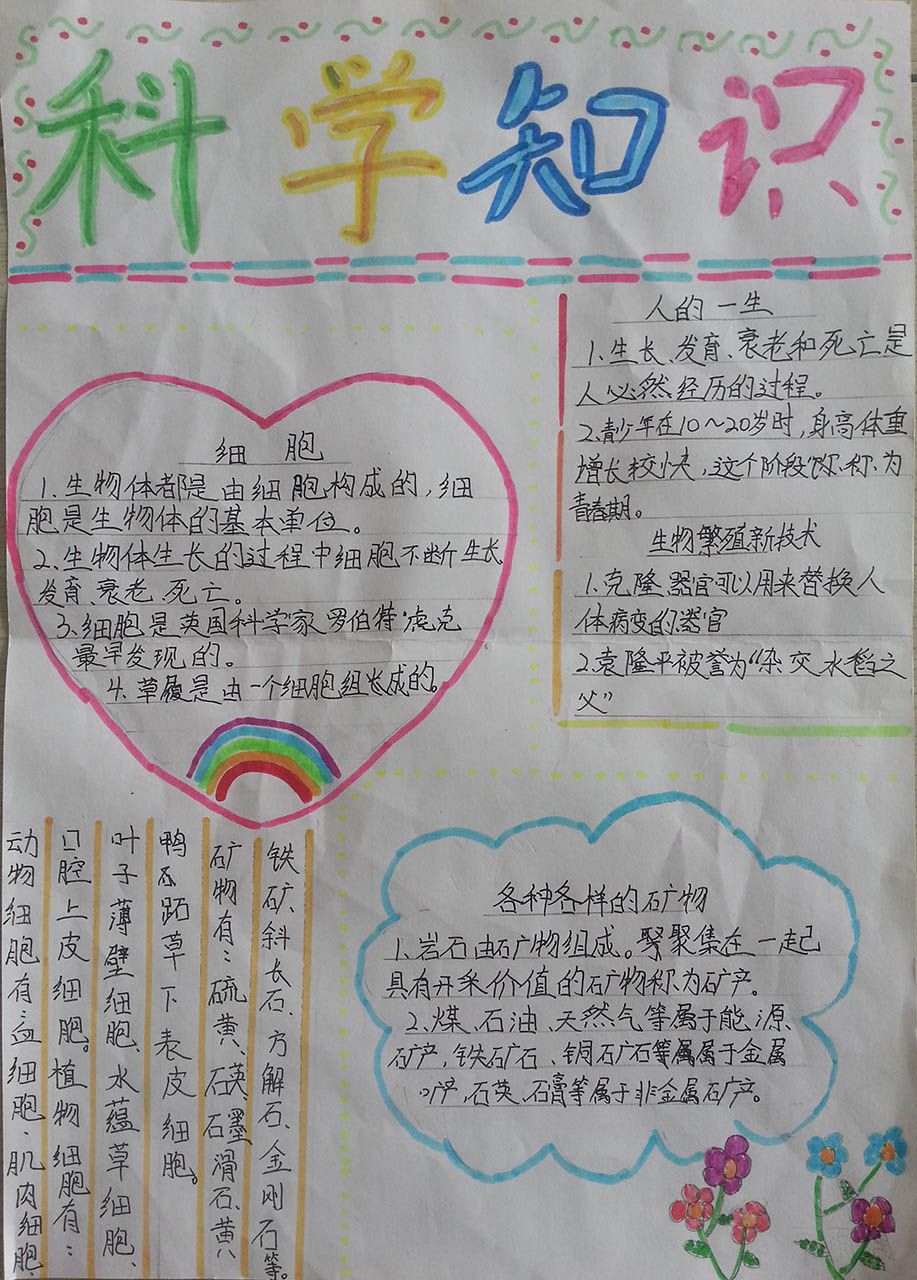 科学知识
细胞
1.生物体都是由细胞构成的,细
胞是生物体的基本单位。
2.生物体生长的过程中细胞不断生长
发育、衰老、死亡。
3.细胞是英国科学家罗伯特·虎克
最早发现的。
4.草履是由一个细胞组长成的。
人的一生
1.生长、发育、衰老和死亡是
人必然经历的过程。
2.青少年在10~20岁时,身高体重
增长较快,这个阶段称为
青春期。
生物繁殖新技术
1.克隆器官可以用来替换人
体病变的器官
2.袁隆平被誉为“杂交水稻之
父”
动物细胞有:血细胞、肌肉细胞、
口腔上皮细胞。植物细胞有:
叶子薄壁细胞、水蕴草细胞、
鸭不跖草下表皮细胞。
矿物有:硫黄、石英、石墨、滑石、黄
铁矿、斜长石、方解石、金刚石等。
各种各样的石矿物
1.岩石由矿物组成。聚集在一起
具有开采价值的矿物称为矿产。
2.煤、石油、天然气等属于能源
矿产,铁矿石、铜矿石等属属于金属
矿产,石英、石膏等属于非金属矿产。